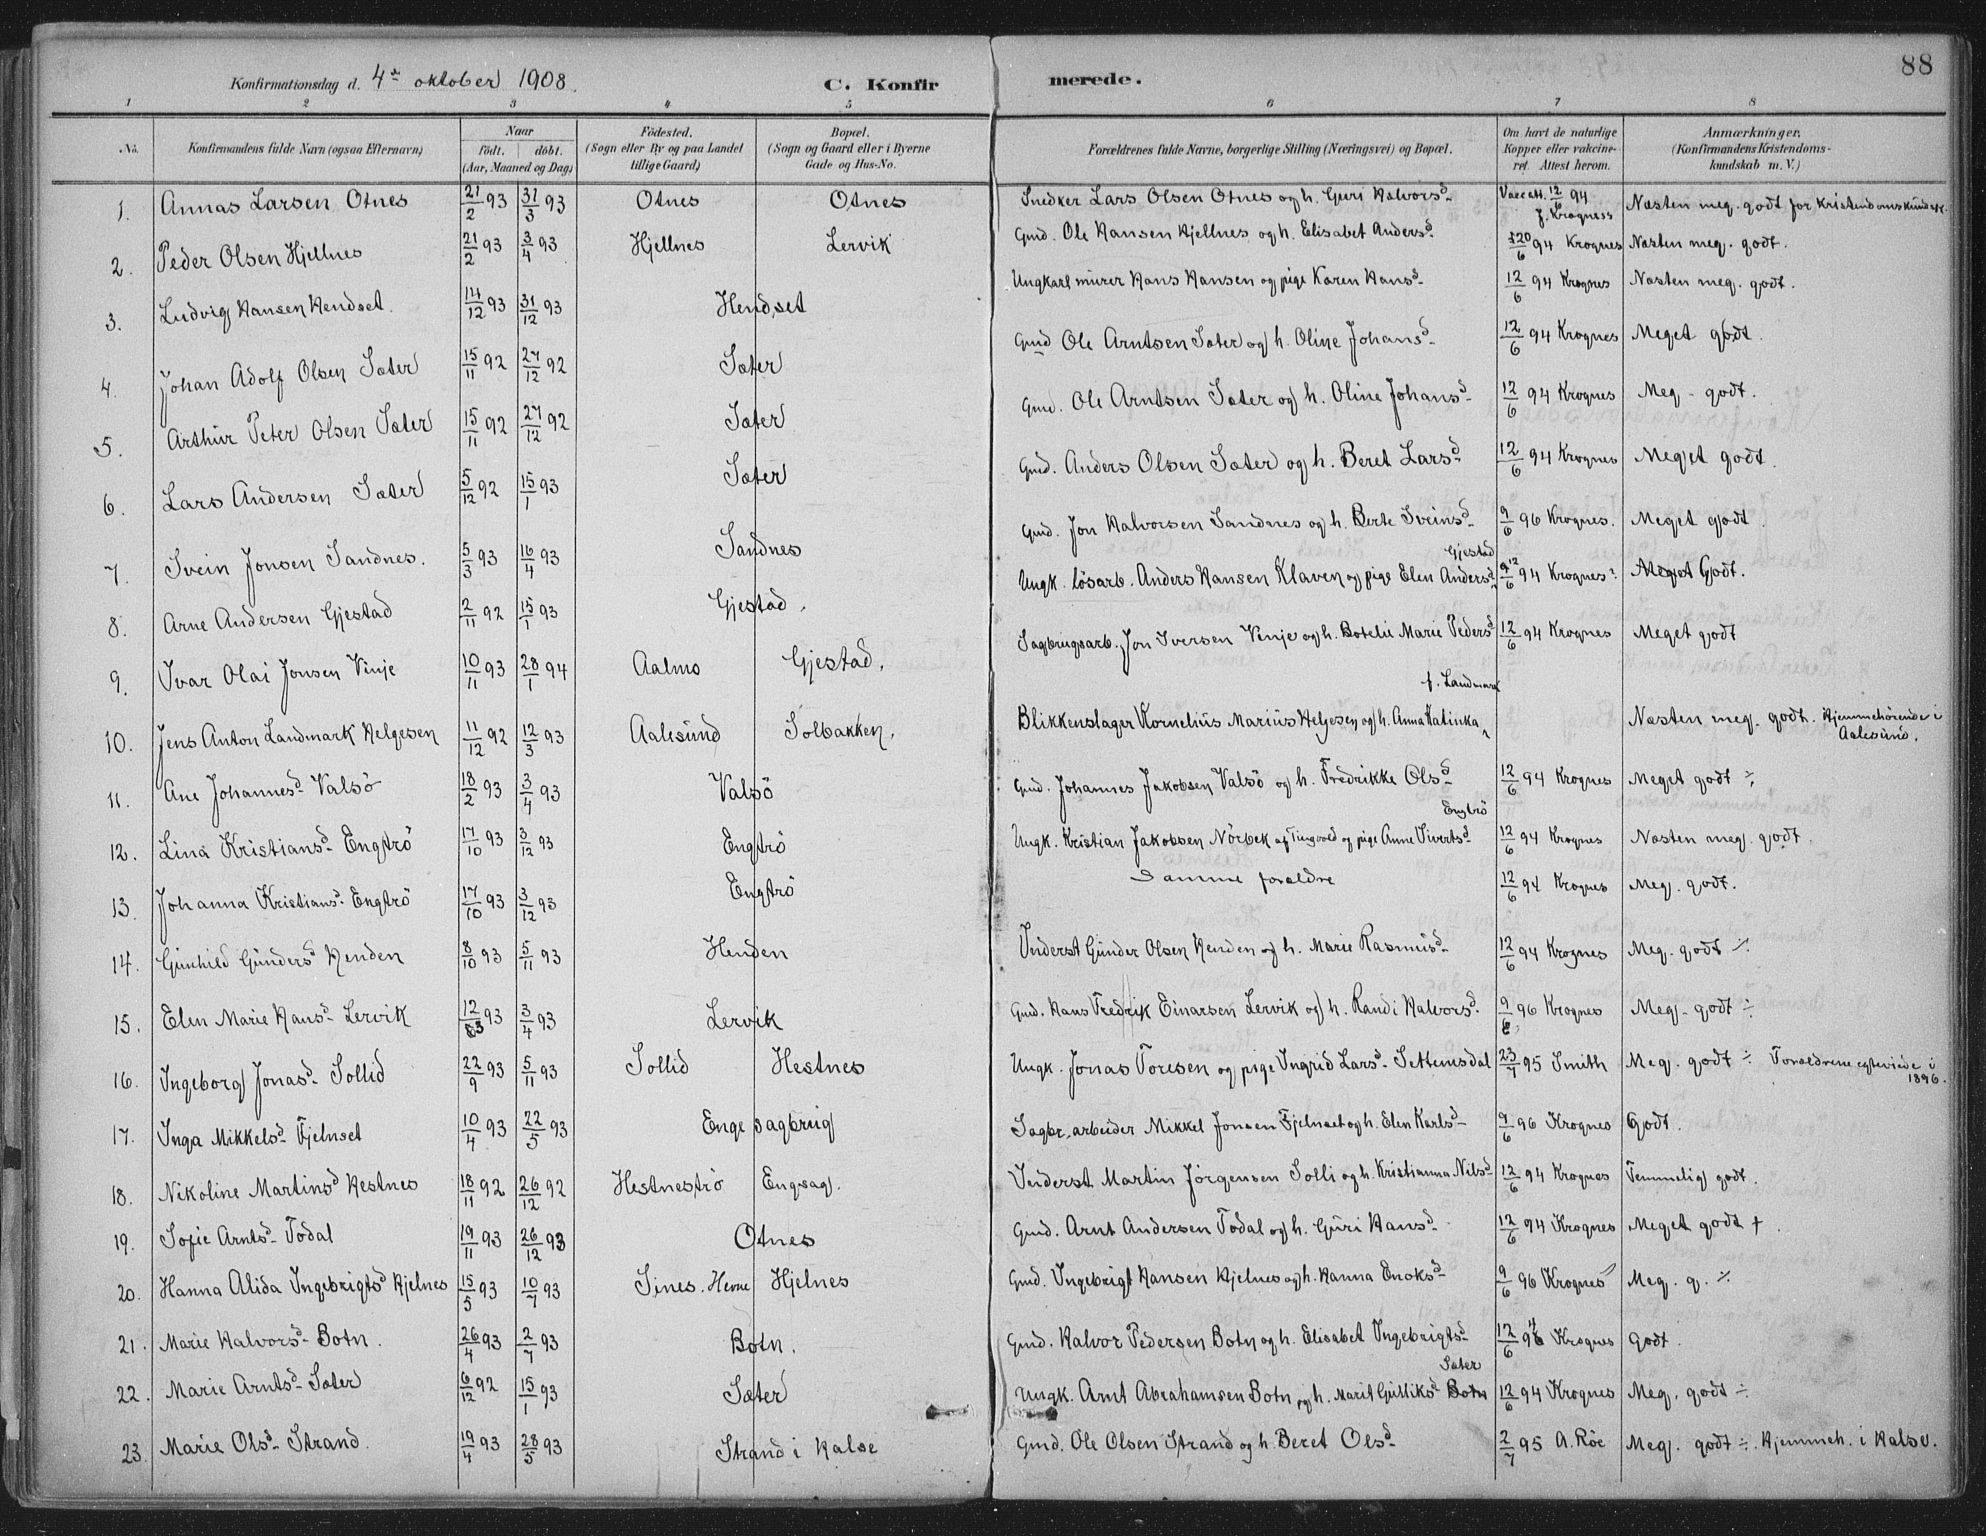 88
Konfirmationsdag d. 4de oktober 1908. C. Konfirmerede.
1 2 3 4 5 6 7 8
No. Konfirmandens fulde Navn (ogsaa Efternavn) Naar født. døbt. (Aar, Maaned og Dag) Fødested. (Sogn eller By og paa Landet tillige Gaard) Bopæl. (Sogn og Gaard eller i Byerne Gade og Hus-No.) Forældrenes fulde Navne, borgerlige Stilling (Næringsvei) og Bopæl. Om havt de naturlige Kopper eller vaccineret. Attest herom. Anmærkninger. (Konfirmandens Kristendomskundskab m. V.)
1. Annas Larsen Otnes 21/2 93 31/3 93 Otnes Otnes Snedker Lars Olsen Otnes og h. Guri Halvorsd. Vaccatt. 12/6 94 f. Krogness Næsten meg. godt for Kristendomskundsk.
2. Peder Olsen Hjellnes 21/2 93 3/4 93 Hjellnes Lervik Gmd. Ole Hansen Hjellnes og h. Elisabet Andersd. 20/6 94 Krognes Næsten meg. godt.
3. Ludvig Hansen Hendset. 14/12 93 31/12 93 Hendset Ungkarl murer Hans Hansen og pige Karen Hansd. 12/6 94 Krognes Næsten meg. godt.
4. Johan Adolf Olsen Sæter 15/11 92 27/12 92 Sæter Gmd Ole Arntsen Sæter og h. Oline Johansd. 12/6 94 Krognes Meget godt.
5. Arthur Peter Olsen Sæter 15/11 92 27/12 92 Sæter Gmd. Ole Arntsen Sæter og h. Oline Johansd. 12/6 94 Krognes Meg. godt.
6. Lars Andersen Sæter 5/12 92 15/1 93 Sæter Gmd. Anders Olsen Sæter og h. Beret Larsd. 12/6 94 Krognes Meget godt.
7. Svein Jonsen Sandnes. 5/3 93 16/4 93 Sandnes Gmd. Jon Halvorsen Sandnes og h. Berte Sveinsd. 9/6 96 Krognes. Meget godt.
8. Arne Andersen Gjestad 2/11 92 15/1 93 Gjestad. Ungk. løsarb. Anders Hansen Klaven og pige Elen Andersd. Gjestad 12/6 94 Krognes. Meget Godt.
9. Ivar Olai Jonsen Vinje 10/11 93 28/1 94 Aalmo Gjestad. Sagbrugsarb. Jon Iversen Vinje og h. Botelie Marie Pedersd. 12/6 94 Krognes Meget godt
10. Jens Anton Landmark Helgesen 11/12 92 12/3 93 Aalesund Solbakken. Blikkenslager Kornelius Marius Helgesen og h. Anna Katinka f. Landmark Næsten meg. godt. Hjemmehørende i Aalesund.
11. Ane Johannesd. Valsö 18/2 93 3/4 93 Valsö Gmd. Johannes Jakobsen Valsö og h. Fredrikke Olsd. 12/6 94 Krognes Meget godt ÷
12. Lina Kristiansd. Engtrö 17/10 93 3/12 93 Engtrö Ungk. Kristian Jakobsen Nörbek af Tingvold og pige Anne Sivertsd. Engtrö 12/6 94 Krognes Næsten meg. godt.
13. Johanna Kristiansd. Engtrö 17/10 93 3/12 93 Engtrö Samme forældre 12/6 94 Krognes Meg. godt.
14. Gunhild Gundersd. Henden 8/10 93 5/11 93 Henden Inderst Gunder Olsen Henden og h. Marie Rasmusd. 12/6 94 Krognes Meg. godt ÷
15. Elen Marie Hansd. Lervik 12/3 93 3/4 93 Lervik Gmd. Hans Fredrik Einarsen Lervik og h. Randi Halvorsd. 9/6 96 Krognes Meg. godt ÷
16. Ingeborg Jonasd. Sollid 22/9 93 5/11 93 Sollid Hestnes Ungk. Jonas Toresen og pige Ingrid Larsd. Settemsdal 23/7 95 Smith Meg. godt ÷ Forældrene egteviede i 1896.
17. Inga Mikkelsd. Fjelnset 10/4 93 22/5 93 Enge sagbrug Sagbr. arbeider Mikkel Jonsen Fjelnset og h. Elen Karlsd. 9/6 96 Krognes Godt.
18. Nikoline Martinsd. Hestnes 18/11 92 26/12 92 Hestneströ Engsag. Inderst Martin Jörgensen Solli og h. Kristianna Nilsd. 12/6 94 Krognes Temmelig godt.
19. Sofie Arntsd. Todal 19/11 93 26/12 93 Otnes Gmd. Arnt Andersen Todal og h. Guri Hansd. 12/6 94 Krognes Meget godt +.
20. Hanna Alida Ingebrigtsd. Hjelnes 15/5 93 10/7 93 Sines. Hevne Hjelnes Gmd. Ingebrigt Hansen Hjelnes og h. Hanna Enoksd. 9/6 96 Krognes Meg. g. ÷
21. Marie Halvorsd. Botn. 26/4 93 2/7 93 Botn. Gmd. Halvor Pedersen Botn og h. Elisabet Ingebrigtsd. 12/6 94 Krognes Godt.
22. Marie Arntsd. Sæter 6/12 92 15/1 93 Sæter Ungk. Arnt Abrahamsen Botn og h. Marit Gulliksd. Botn Sæter 12/6 94 Krognes Meg. godt ÷.
23. Marie Olsd. Strand. 19/4 93 28/5 93 Strand i Halse Gmd. Ole Olsen Strand og h. Beret Olsd. 2/7 95 A. Röe Meg. godt ÷. Hjemmeh. i Halse.